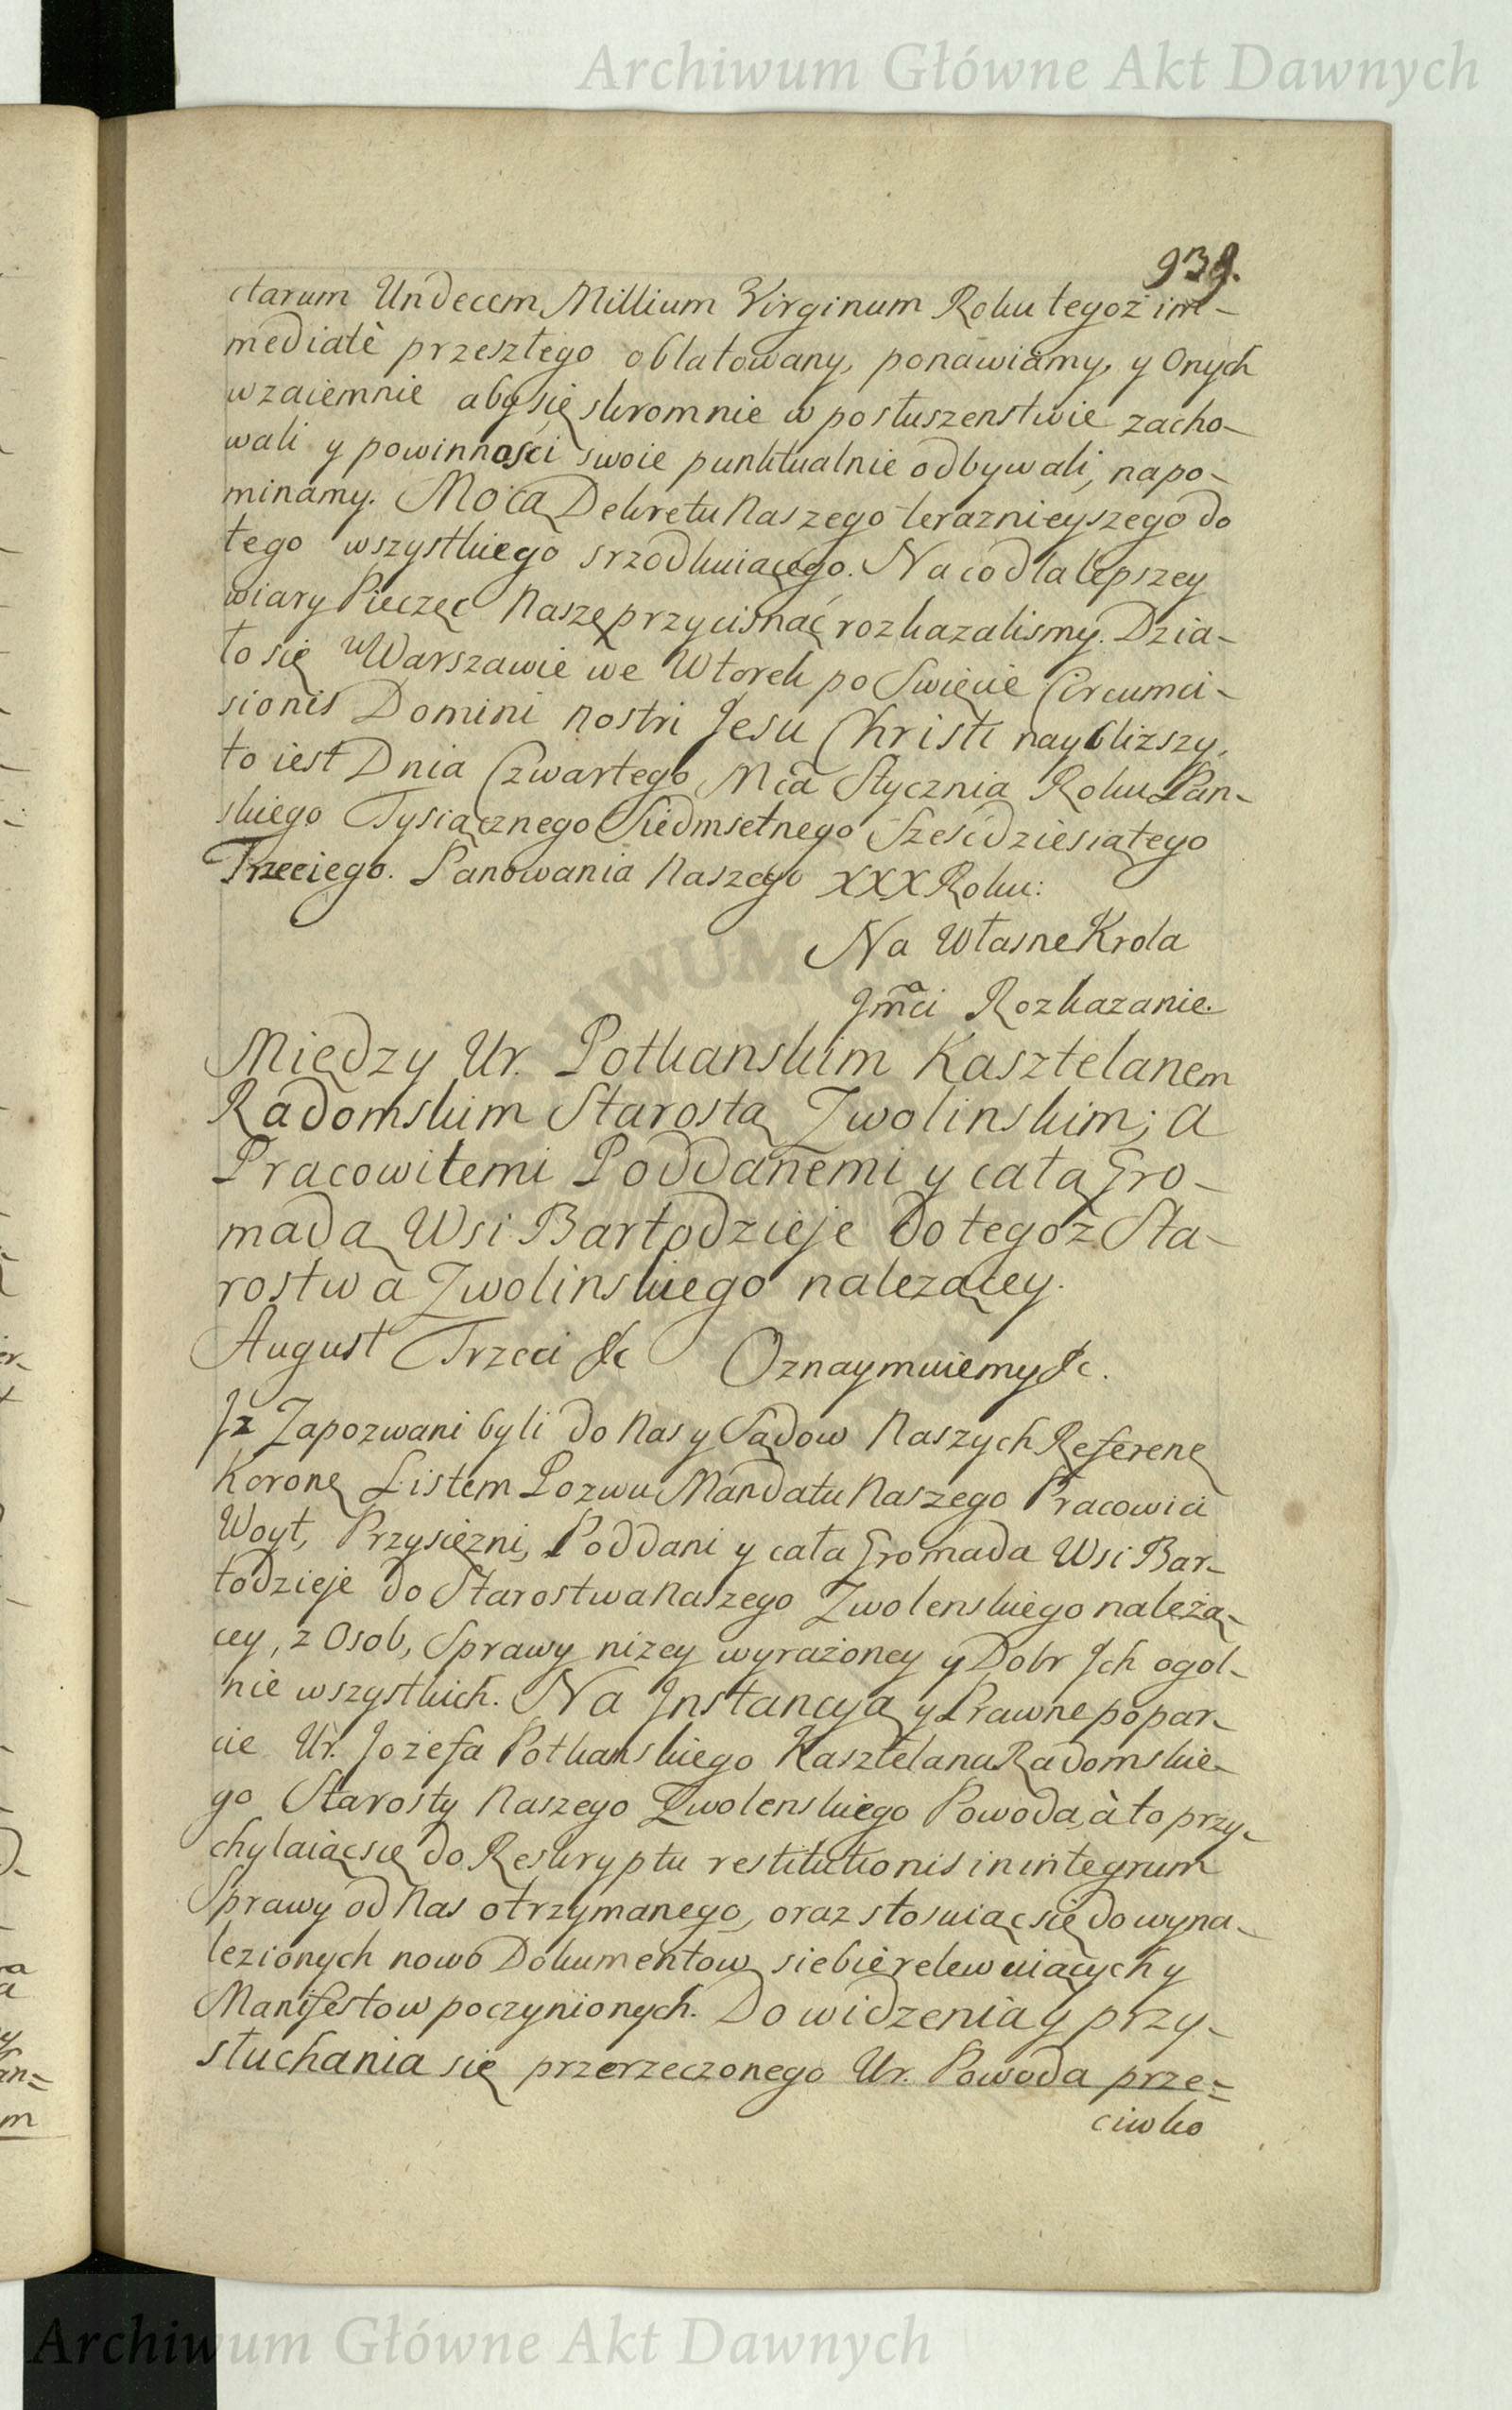 Archiwum Główne Akt Dawnych
939.
ctarum Undecem Millium Virginum Roku tegoż im-
mediatè przeszłego oblatowany, ponawiamy, y Onych
wzaiemnie aby się skromnie w posłuszenstwie zacho-
wali y powinności swoie punktualnie odbywali, napo-
minamy. Mocą Dekretu Naszego teraznieyszego do
tego wszystkiego srzodkuiącego. Na co dla lepszey
wiary Pieczęc Naszę przycisnąć rozkazalismy. Dzia-
ło się w Warszawie we Wtorek po Swięcie Circumci-
sionis Domini Nostri Jesu Christi naybliższy,
to iest Dnia Czwartego Mca Stycznia Roku Pan-
skiego Tysiącznego Siedmsetnego Sześcdziesiątego
Trzeciego. Panowania Naszego XXX Roku:
Na Własne Krola
Jmci Rozkazanie.
Między Ur. Potkanskim Kasztelanem
Radomskim Starostą Zwolinskim; a
Pracowitemi Poddanemi y całą Gro-
madą Wsi Bartodzieje do tegoż Sta-
rostwa Zwolinskiego należącey.
August Trzeci &c Oznaymuiemy &c.
Jż Zapozwani byli do Nas y Sądow Naszych Referenę
Koronę Listem Pozwu Mandatu Naszego Pracowici
Woyt, Przysiężni, Poddani y cała Gromada Wsi Bar-
todzieje do Starostwa Naszego Zwolenskiego należą-
cey, z Osob, Sprawy niżey wyrażoney y Dobr Jch ogol-
nie wszystkich. Na Jnstancyą y Prawne popar-
cie Ur. Jozefa Potkanskiego Kasztelana Radomskie-
go Starosty Naszego Zwolenskiego Powoda, à to przy-
chylaiąc się do Reskryptu restitutionis in integrum
Sprawy od Nas otrzymanego, oraz stosuiąc się do wyna-
lezionych nowo Dokumentow siebie relewuiących y
Manifestow poczynionych. Do widzenia y przy-
słuchania się przerzeczonego Ur. Powoda prze-
ciwko
Archiwum Główne Akt Dawnych